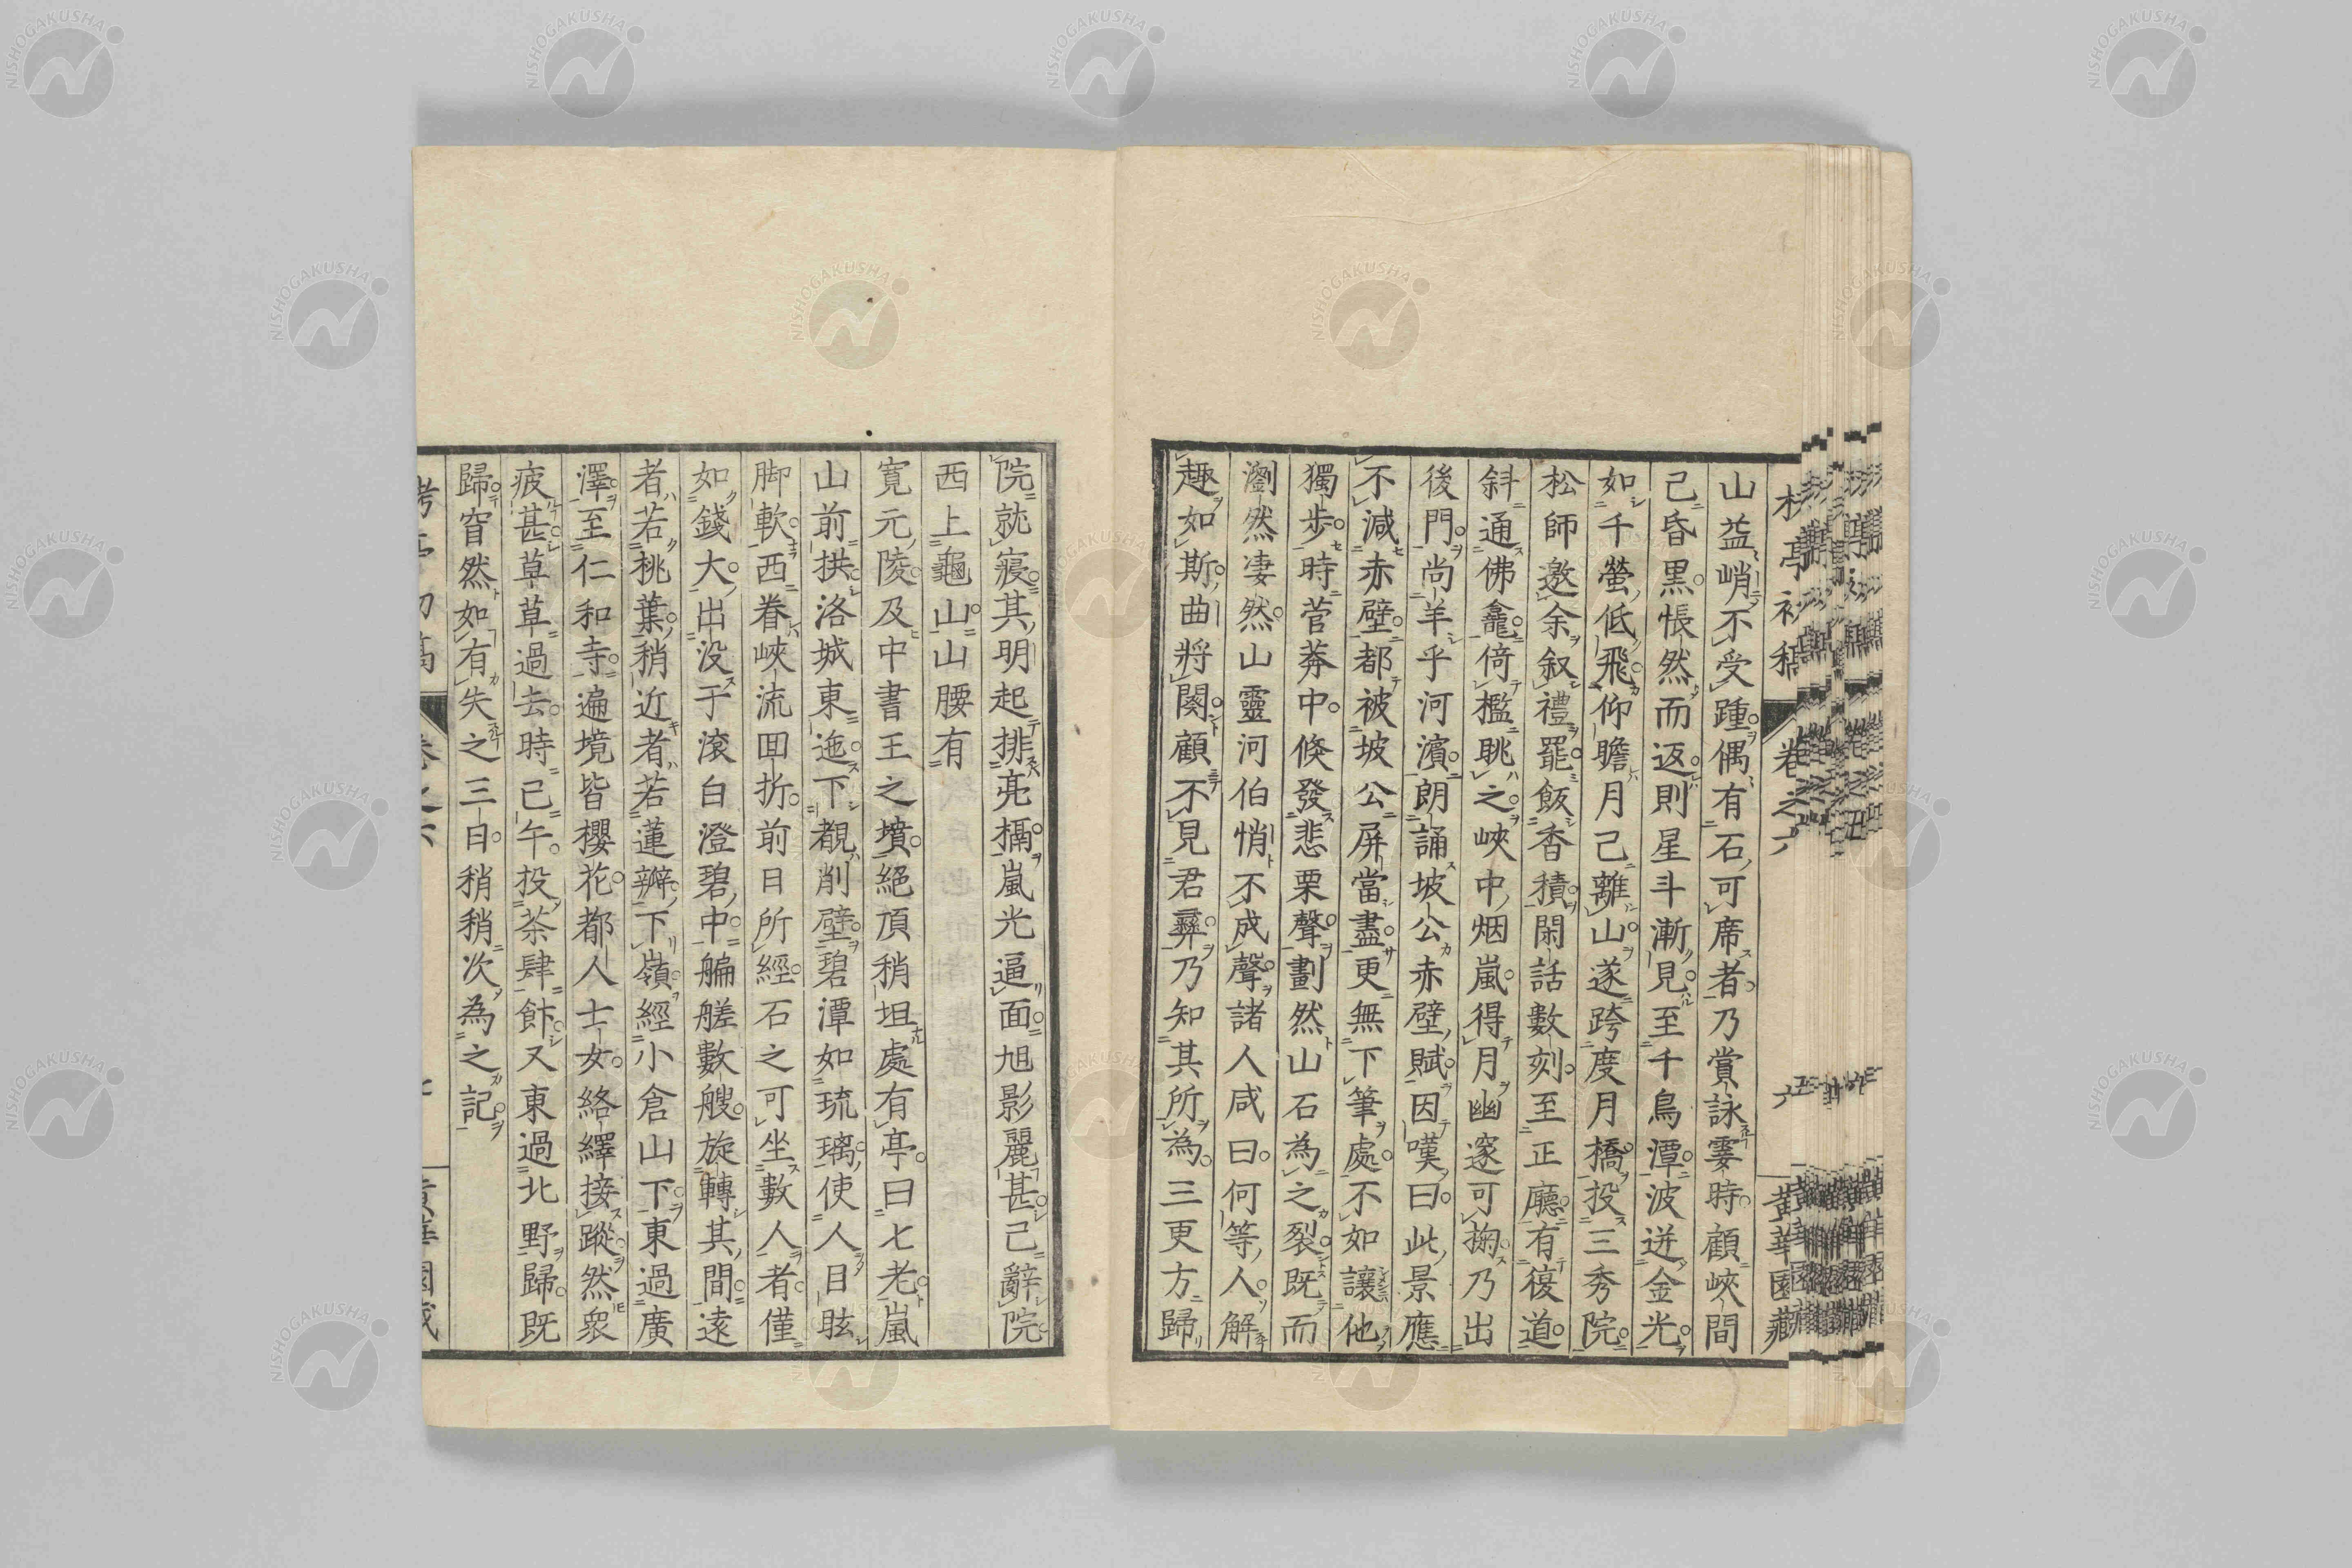 山益峭不受踵偶有石可席者乃賞詠霎時顧峽間
已昏黑悵然而返則星斗漸見至千鳥潭波迸金光
如千螢低飛仰瞻月已離山遂跨度月橋投三秀院
松師邀余叙禮罷飯香積閑話數刻至正廳有複道
斜通佛龕倚檻眺之峽中烟嵐得月幽邃可掬乃出
後門尚羊乎河濱朗誦坡公赤壁賦因嘆曰此景應
不減赤壁都被坡公屏當盡更無下筆處不如讓他
獨步時菅莽中倏發悲栗聲劃然山石為之裂既而
瀏然凄然山靈河伯悄不成聲諸人咸曰何等人解
趣如斯曲將闋顧不見君彝乃知其所為三更方歸
院就寢其明起排亮搨嵐光逼面旭影麗甚已辭院
西上龜山山腰有
寛元陵及中書王之墳絕頂稍坦處有亭曰七老嵐
山前拱洛城東迤下覩削壁碧潭如琉璃使人目眩
脚軟西眷峽流回折前日所經石之可坐數人者僅
如錢大出没于滾白澄碧中艑艖數艘旋轉其間遠
者若桃葉稍近者若蓮瓣下嶺經小倉山下東過廣
澤至仁和寺遍境皆櫻花都人士女絡繹接蹤然衆
疲甚草草過去時已午投茶肆飰又東過北野歸既
歸窅然如有失之三日稍稍次為之記
卷之六
黃華園藏
NISHOGAKUSHA